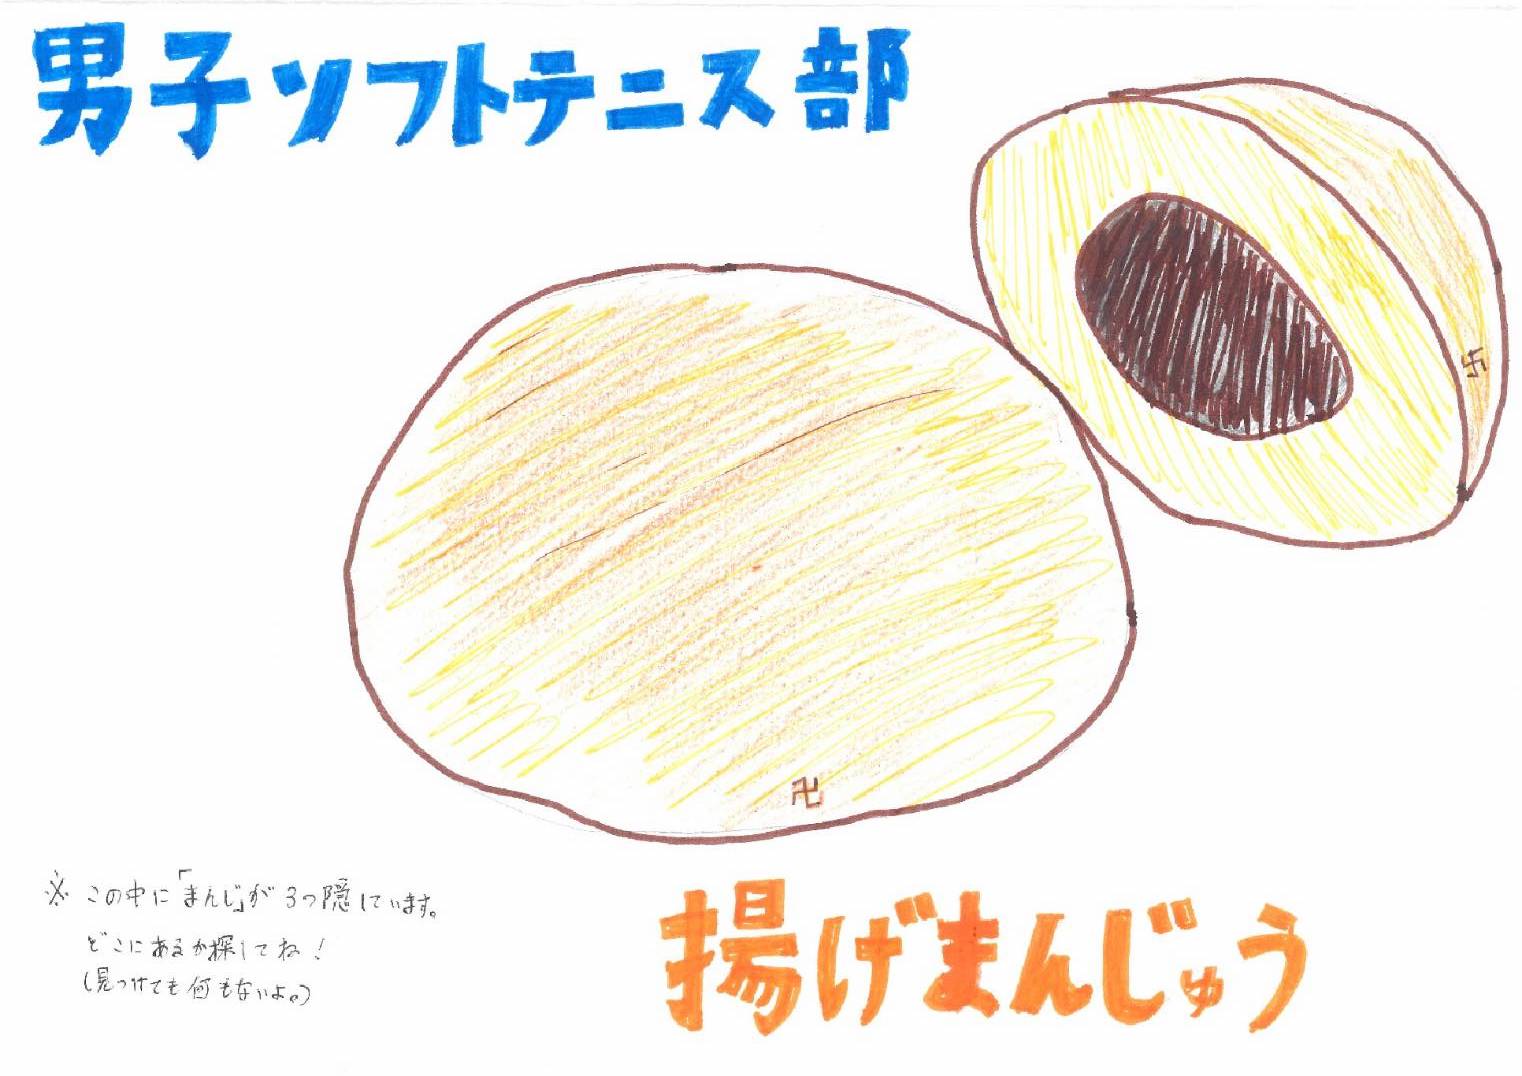 男子ソフトテニス部
卐
卍
※この中に「まんじ」が3つ隠しています。
どこにあるか探してね！
(見つけても何もないよ。)
揚げまんじゅう